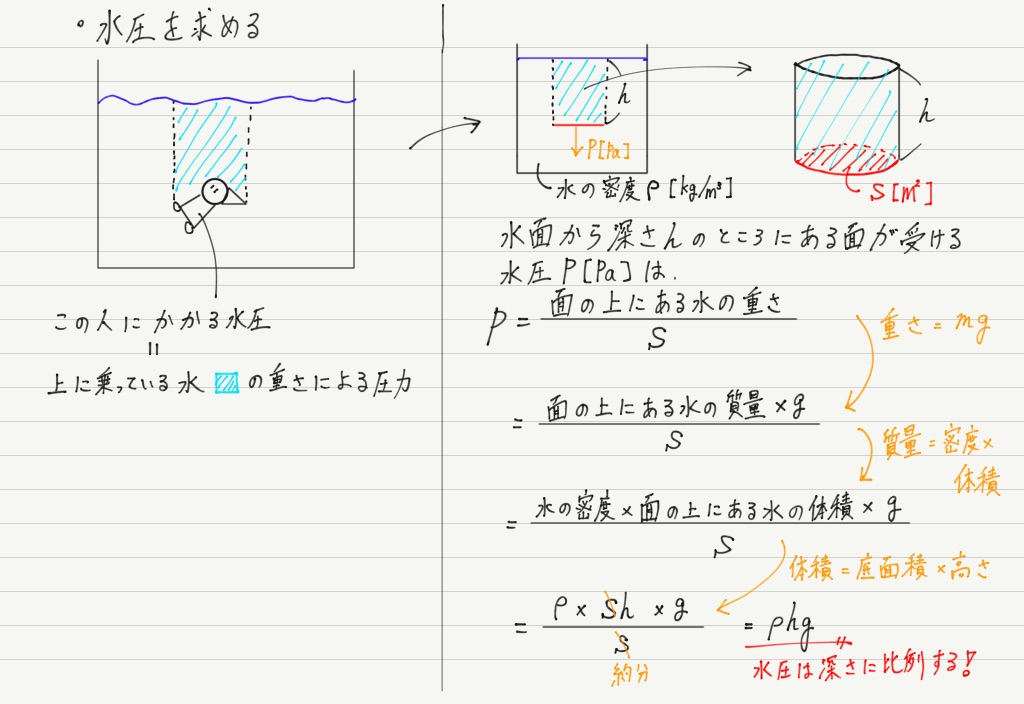 ・水圧を求める
この人にかかる水圧
=
上に乗っている水 の重さによる圧力
h
P[Pa]
水の密度ρ[kg/m³]
h
S[m²]
水面から深さhのところにある面が受ける
水圧P[Pa]は.
P = 面の上にある水の重さ / S
重さ = mg
= 面の上にある水の質量×g / S
質量=密度×
体積
= 水の密度×面の上にある水の体積×g / S
体積=底面積×高さ
= ρ × Sh × g / S
約分
= ρhg
水圧は深さに比例する!